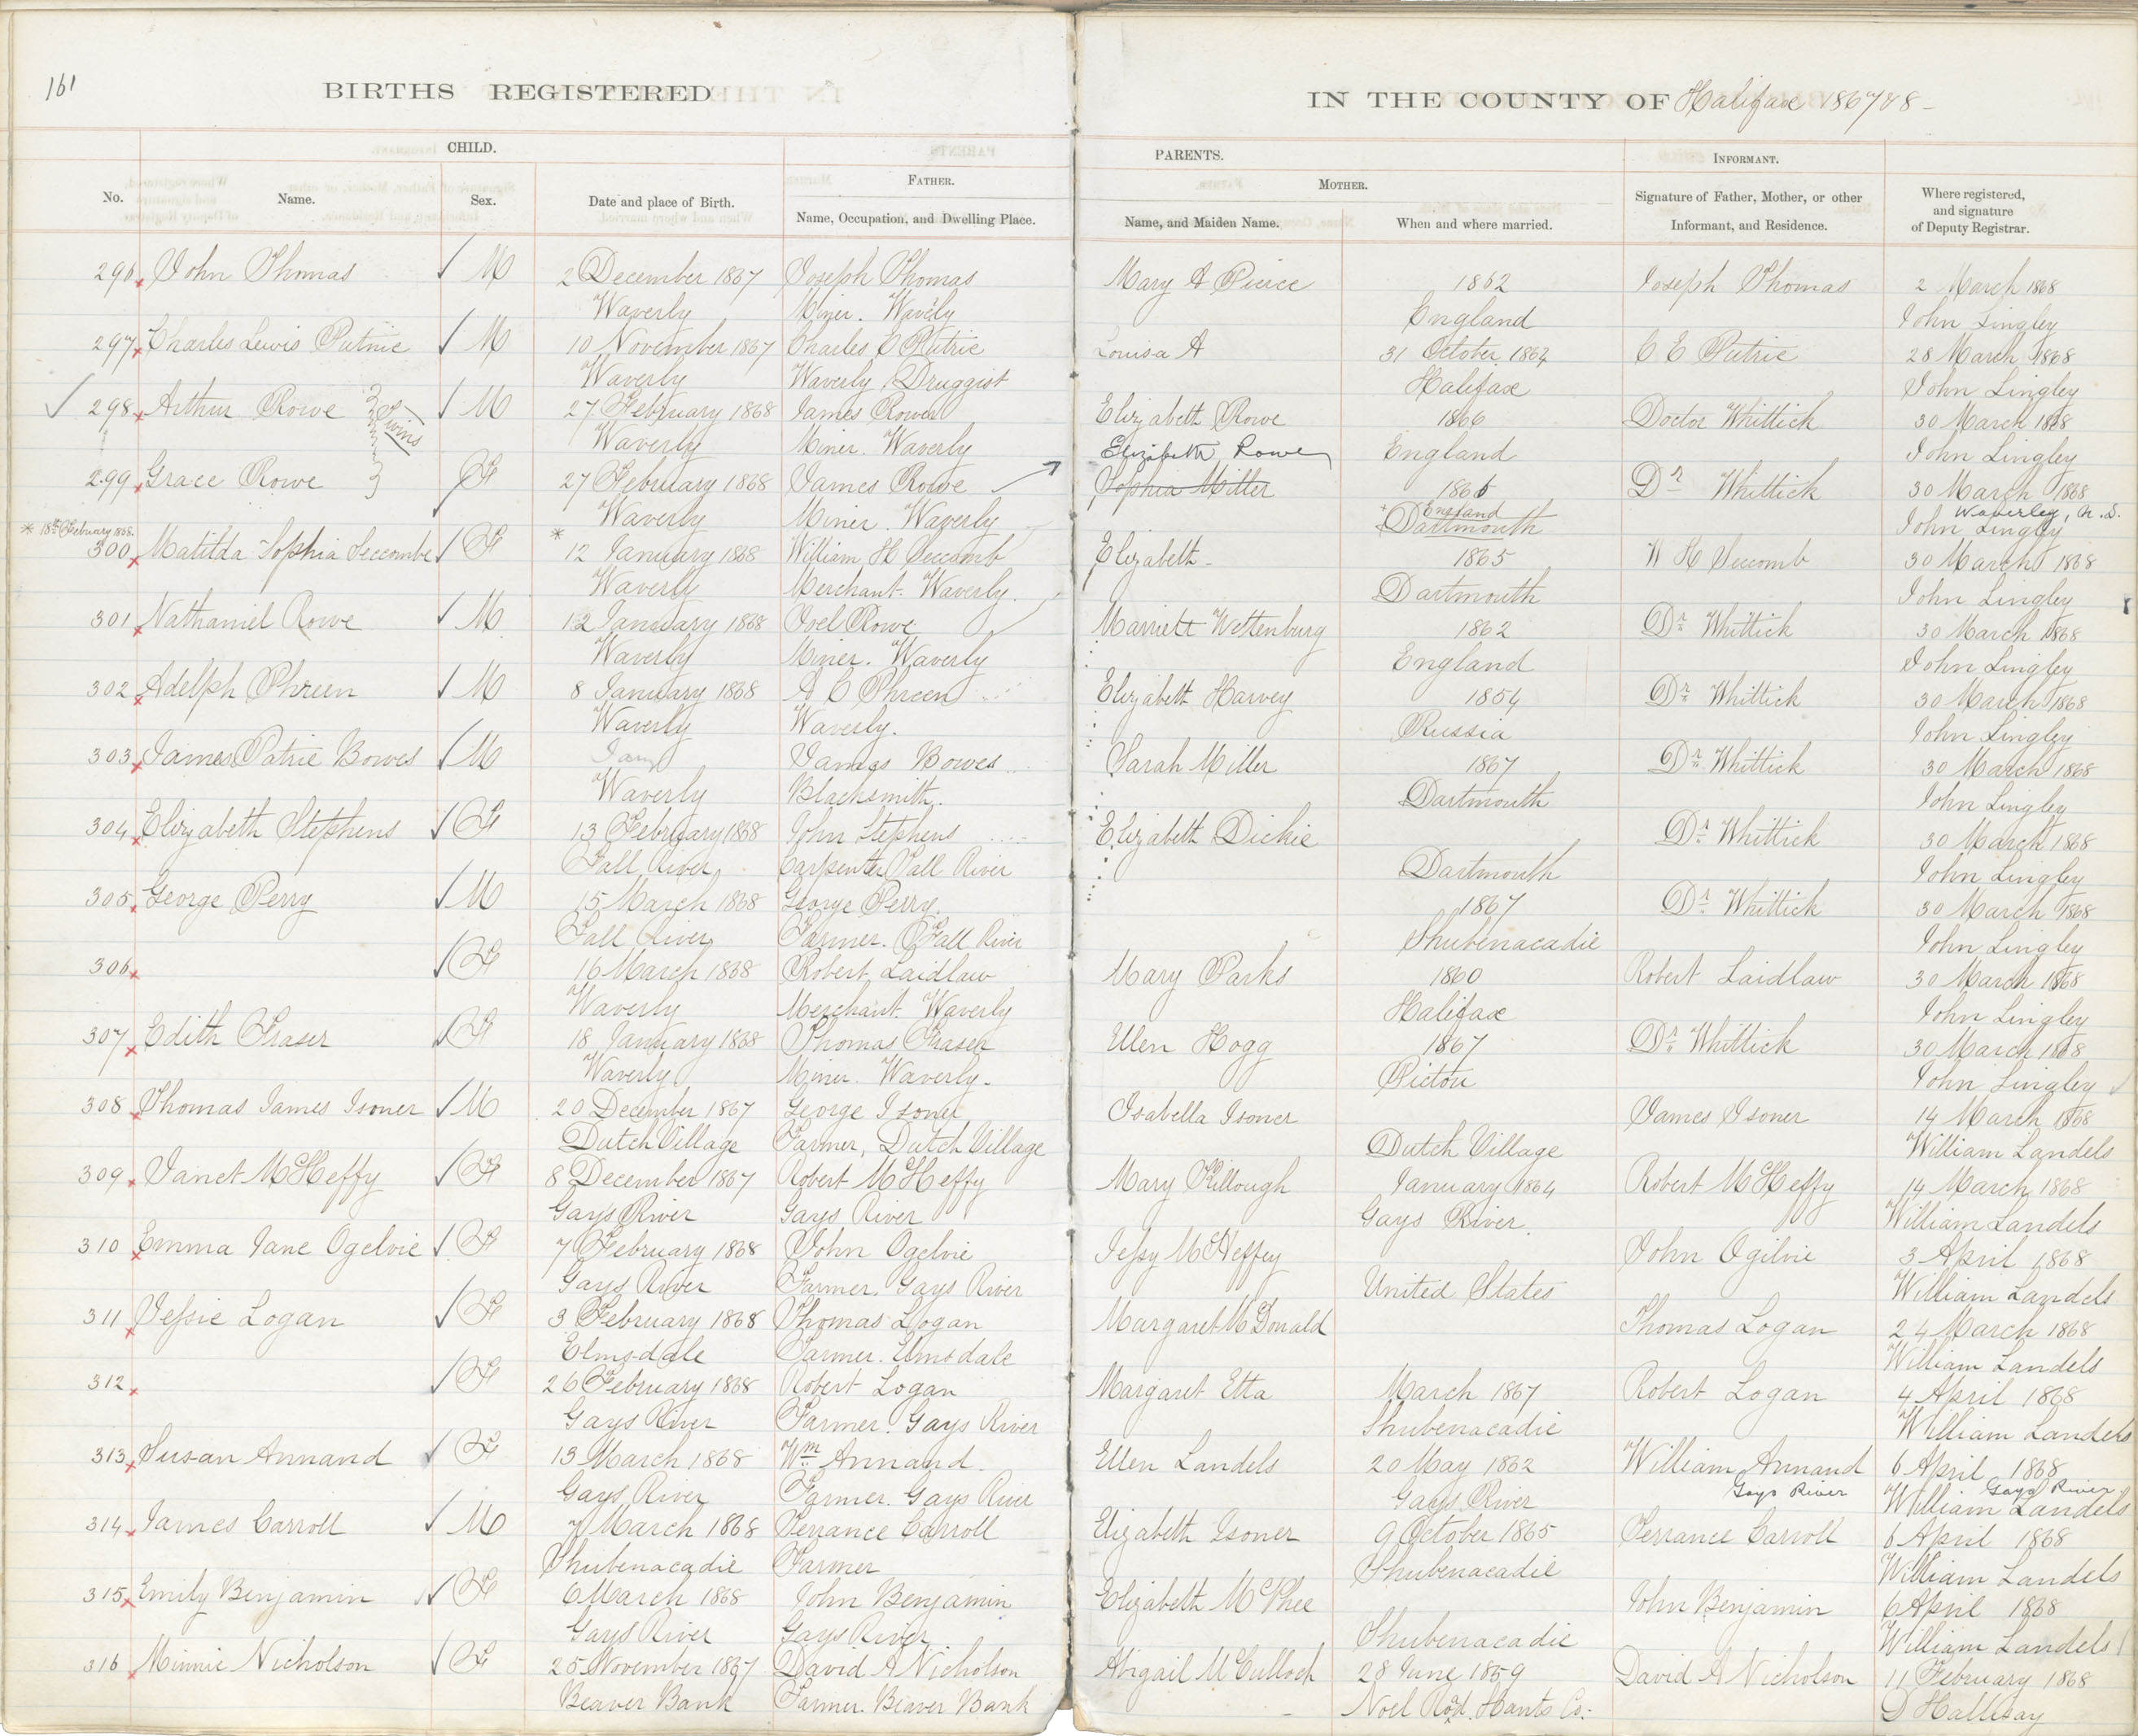 161
BIRTHS REGISTERED
IN THE COUNTY OF Halifax 1867 & 8 -
CHILD.
PARENTS.
INFORMANT.
FATHER.
MOTHER.
No.
Name.
Sex.
Date and place of Birth.
Name, Occupation, and Dwelling Place.
Name, and Maiden Name.
When and where married.
Signature of Father, Mother, or other
Informant, and Residence.
Where registered,
and signature
of Deputy Registrar.
296 John Thomas M 2 December 1867 Joseph Thomas Mary A Pierce 1862 Joseph Thomas 2 March 1868
Waverly Miner. Waverly England John Lingley
297 Charles Lewis Putrie M 10 November 1867 Charles E Putrie Louisa A 31 October 1862 C E Putrie 28 March 1868
Waverly Waverly, Druggist Halifax John Lingley
298 Arthur Rowe Twins M 27 February 1868 James Rowe Elizabeth Rowe 1866 Doctor Whittick 30 March 1868
Waverly Miner. Waverly England John Lingley
Elizabeth Rowe
299 Grace Rowe F 27 February 1868 James Rowe Sophia Miller 1866 Dr Whittick 30 March 1868
Waverly Miner. Waverly England Dartmouth Waverley, N.S. John Lingley
* 18th February 1868.
300 Matilda Sophia Seccombe F * 12 January 1868 William H Seccomb Elizabeth - 1865 W H Seccomb 30 March 1868
Waverly Merchant. Waverly. Dartmouth John Lingley
301 Nathaniel Rowe M 12 January 1868 Joel Rowe Marriett Wettenburg 1862 Dr Whittick 30 March 1868
Waverly Miner. Waverly England John Lingley
302 Adelph Phreen M 8 January 1868 A E Phreen Elizabeth Harvey 1854 Dr Whittick 30 March 1868
Waverly Waverly. Russia John Lingley
303 James Patrie Bowes M Jany James Bowes Sarah Miller 1867 Dr Whittick 30 March 1868
Waverly Blacksmith. Dartmouth John Lingley
304 Elizabeth Stephens F 13 February 1868 John Stephens Elizabeth Dickie Dr Whittick 30 March 1868
Fall River Carpenter Fall River Dartmouth John Lingley
305 George Perry M 15 March 1868 George Perry. 1867 Dr Whittick 30 March 1868
Fall River Farmer. Fall River Shubenacadie John Lingley
306 F 16 March 1868 Robert Laidlaw Mary Parks 1860 Robert Laidlaw 30 March 1868
Waverly Merchant. Waverly Halifax John Lingley
307 Edith Fraser F 18 January 1868 Thomas Fraser Ellen Hogg 1867 Dr Whittick 30 March 1868
Waverly Miner. Waverly. Pictou John Lingley
308 Thomas James Isoner M 20 December 1867 George Isoner Isabella Isoner James Isoner 14 March 1868
Dutch Village Farmer, Dutch Village Dutch Village William Landels
309 Janet McHeffy F 8 December 1867 Robert McHeffy Mary Killough January 1864 Robert McHeffy 14 March 1868
Gays River Gays River Gays River. William Landels
310 Emma Jane Ogelvie F 7 February 1868 John Ogelvie Jessy McHeffey John Ogilvie 3 April 1868
Gays River Farmer. Gays River United States William Landels
311 Jessie Logan F 3 February 1868 Thomas Logan Margaret McDonald Thomas Logan 24 March 1868
Elmsdale Farmer. Elmsdale William Landels
312 F 26 February 1868 Robert Logan Margaret Etta March 1867 Robert Logan 4 April 1868
Gays River Farmer. Gays River Shubenacadie William Landels
313 Susan Annand F 13 March 1868 Wm Annand. Ellen Landels 20 May 1862 William Annand 6 April 1868
Gays River Farmer. Gays River Gays River Gays River Gays River William Landels
314 James Carroll M 7 March 1868 Terrance Carroll Elizabeth Isoner 9 October 1865 Terrance Carroll 6 April 1868
Shubenacadie Farmer Shubenacadie William Landels
315 Emily Benjamin F 6 March 1868 John Benjamin Elizabeth McPhee John Benjamin 6 April 1868
Gays River Gays River Shubenacadie William Landels
316 Minnie Nicholson F 25 November 1867 David A Nicholson Abigail McCulloch 28 June 1859 David A Nicholson 11 February 1868
Beaver Bank Farmer. Beaver Bank Noel Road. Hants Co: D Halliday